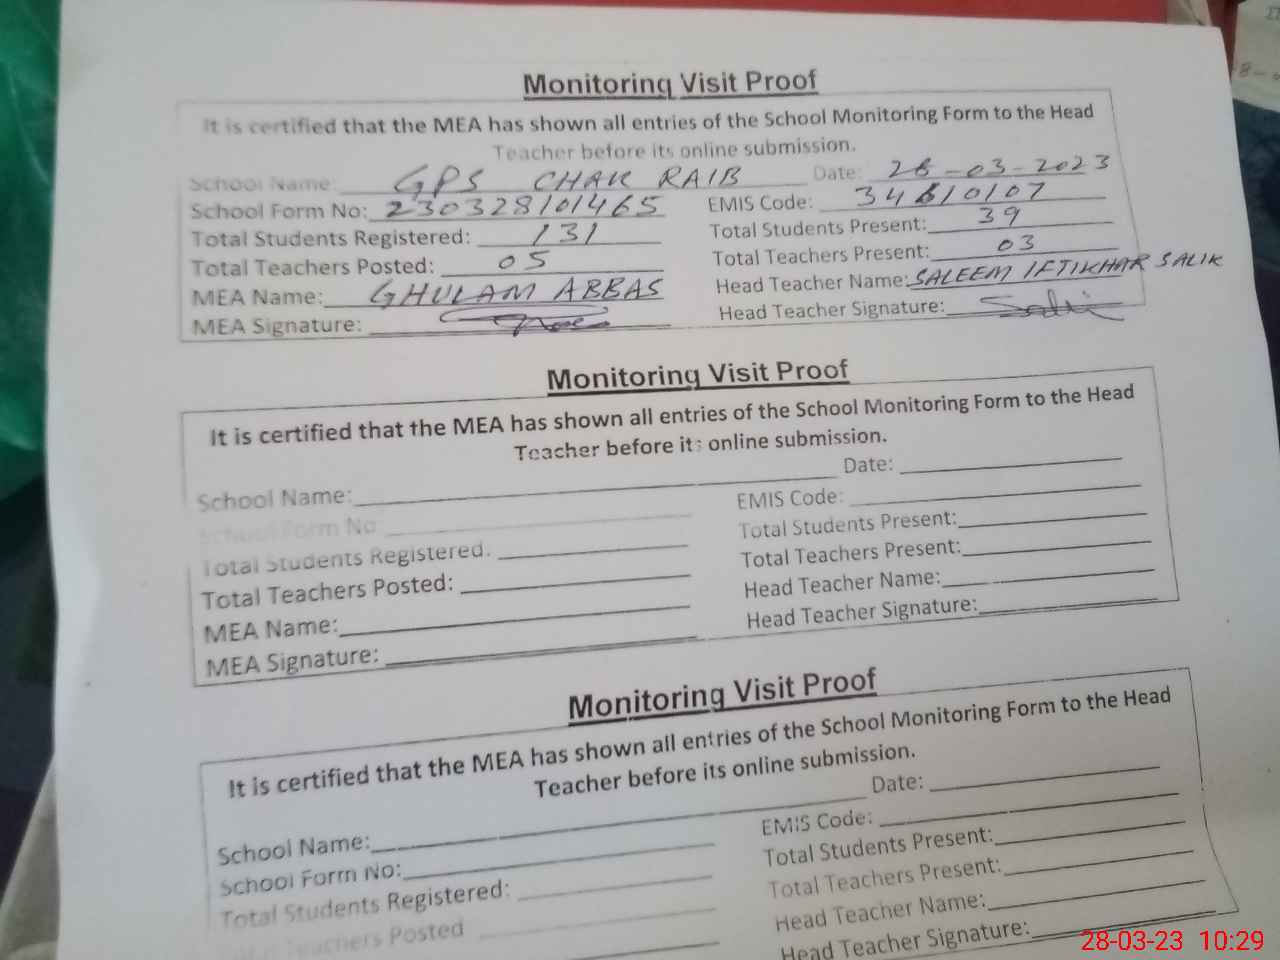 Monitoring Visit Proof
It is certified that the MEA has shown all entries of the School Monitoring Form to the Head
Teacher before its online submission.
School Name: GPS CHAK RAIB Date: 28-03-2023
School Form No: 230328101465 EMIS Code: 34610107
Total Students Registered: 131 Total Students Present: 39
Total Teachers Posted: 05 Total Teachers Present: 03
MEA Name: GHULAM ABBAS Head Teacher Name: SALEEM IFTIKHAR SALIK
MEA Signature: Head Teacher Signature:
Monitoring Visit Proof
It is certified that the MEA has shown all entries of the School Monitoring Form to the Head
Teacher before its online submission.
School Name: Date:
School Form No EMIS Code:
Total Students Registered. Total Students Present:
Total Teachers Posted: Total Teachers Present:
MEA Name: Head Teacher Name:
MEA Signature: Head Teacher Signature:
Monitoring Visit Proof
It is certified that the MEA has shown all entries of the School Monitoring Form to the Head
Teacher before its online submission.
School Name: Date:
School Form No: EMIS Code:
Total Students Registered: Total Students Present:
Teachers Posted Total Teachers Present:
Head Teacher Name:
Head Teacher Signature:
28-03-23 10:29